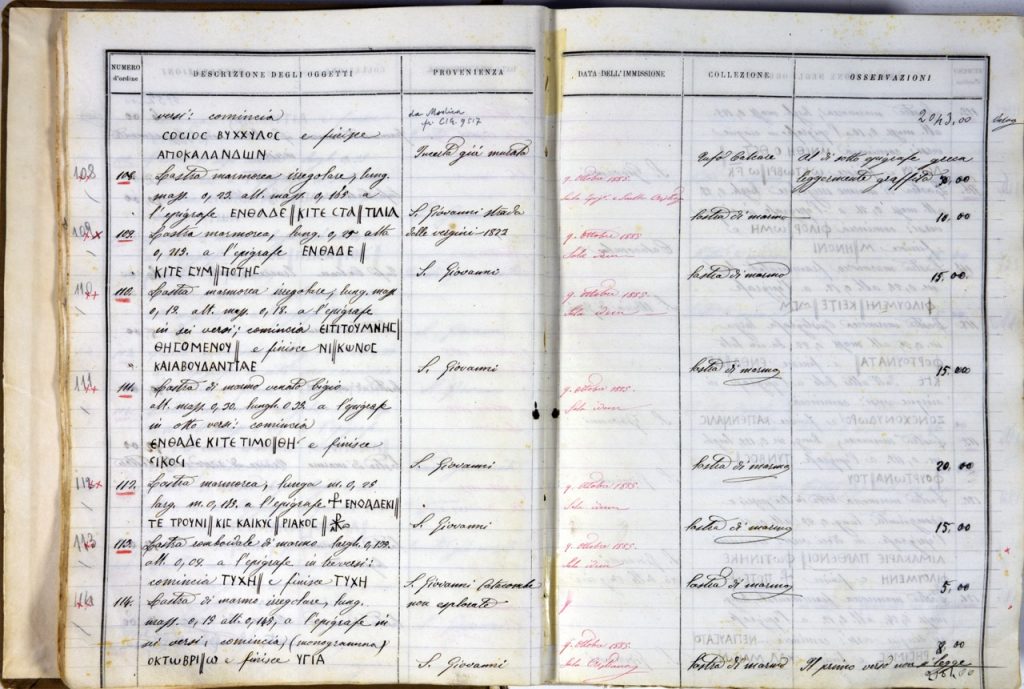 NUMERO d'ordine
DESCRIZIONE DEGLI OGGETTI
PROVENIENZA
DATA DELL'IMMISSIONE
COLLEZIONE
OSSERVAZIONI
versi: comincia
da Modica
CIG. 9517
2043,00
COCIOC ΒΥΧΧΥΛΟC e finisce
ΑΠΟΚΑΛΑΝΔΩΝ
Incerta già murata
Tufo Calcare
Al di sotto epigrafe greca
108
108.
Lastra marmorea irregolare, lung.
9. Ottobre 1885.
leggermente graffita
mass. 0, 23. alt. mass. 0, 165. a
l'epigrafe ΕΝΘΑΔΕ||ΚΙΤΕ CΤΑ||ΤΙΛΙΑ
S. Giovanni strada
lastra di marmo
10. 00
109
109.
Lastra marmorea, lung. 0, 25 alt.
delle vergini 1873
9. Ottobre 1885.
0, 213. a l'epigrafe ΕΝΘΑΔΕ ||
Sala idem
ΚΙΤΕ CΥΜ||ΠΟΤΗC
S. Giovanni
lastra di marmo
15. 00
110
110.
Lastra marmorea irregolare, lung. mass.
9. Ottobre 1885.
0, 19. alt. mass. 0, 18. a l'epigrafe
Sala idem
in sei versi; comincia ΕΙΤΙΤΟΥΜΝΗC||
ΘΗCΟΜΕΝΟΥ|| e finisce ΝΙ||ΚΩΝΟC
ΚΑΙΑΒΟΥΔΑΝΤΙΑΕ
S. Giovanni
lastra di marmo
15. 00
111
111.
Lastra di marmo venato bigio
9. Ottobre 1885.
alt. mass. 0, 30. lungh. 0 32. a l'epigrafe
Sala idem
in otto versi: comincia
ΕΝΘΑΔΕ ΚΙΤΕ ΤΙΜΟ||ΘΗ e finisce
CΙΚΟCΙ
S. Giovanni
lastra di marmo
20. 00
112
112.
Lastra marmorea, lunga m. 0, 25
9. Ottobre 1885.
larg. m. 0, 133. a l'epigrafe + ΕΝΘΑΔΕΚΙ||
Sala idem
ΤΕ ΤΡΟΥΝΙ||ΚΙC ΚΑΙΚΥC||ΡΙΑΚΟC||☧
S. Giovanni
lastra di marmo
15. 00
113
113.
Lastra romboidale di marmo largh. 0, 132.
9. Ottobre 1885.
alt. 0, 09. a l'epigrafe in tre versi:
Sala idem
comincia ΤΥΧΗ|| e finisce ΤΥΧΗ
S. Giovanni Catacombe
lastra di marmo
5. 00
114
114.
Lastra di marmo irregolare, lung.
non esplorate
mass. 0, 19 alt. 0, 148, a l'epigrafe in
sei versi, comincia, (monogramma)
9. Ottobre 1885.
8. 00
ΟΚΤΩΒΡΙ||Ω e finisce ΥΓΙΑ
S. Giovanni
lastra di marmo
Il primo verso non si legge